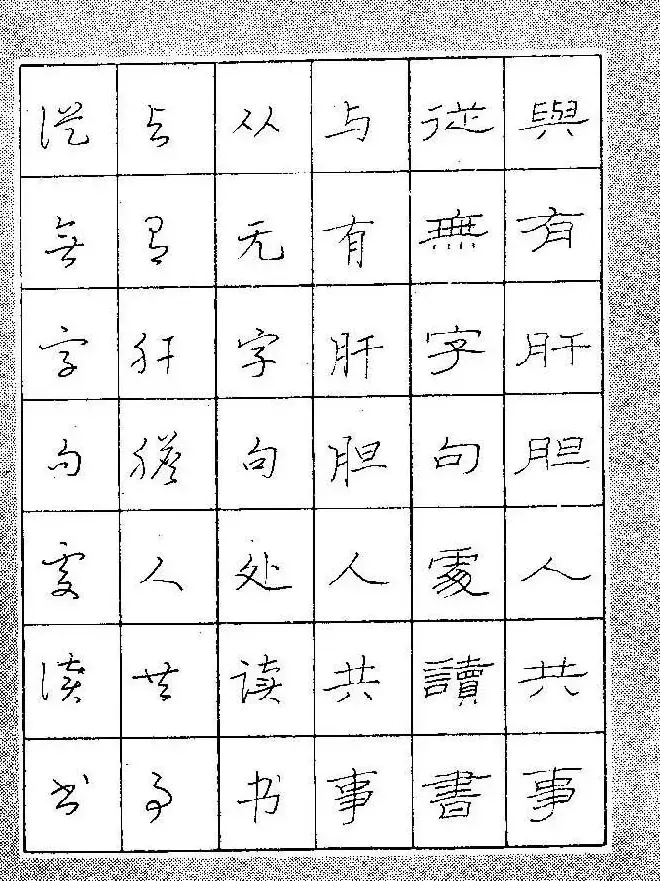 與有肝胆人共事
從無字句處讀書
与有肝胆人共事
从无字句处读书
与有肝膽人共事
從無字句處讀书